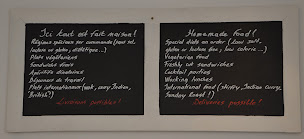 Ici tout est fait maison!
Régimes spéciaux sur commande (peu sel,
gluten, diététique...)
Plats végétariens
Sandwichs frais
Apéritifs dînatoires
Déjeuners de travail
Plats internationaux (wok, curry Indien,
British!)
Livraisons possibles!
Homemade food!
Special diets on order (low salt,
gluten or lactose free, low calorie...)
Vegetarian food
Freshly cut sandwiches
Cocktail parties
Working lunches
International food (stirfry, Indian curry,
Sunday Roast!)
Deliveries possible!